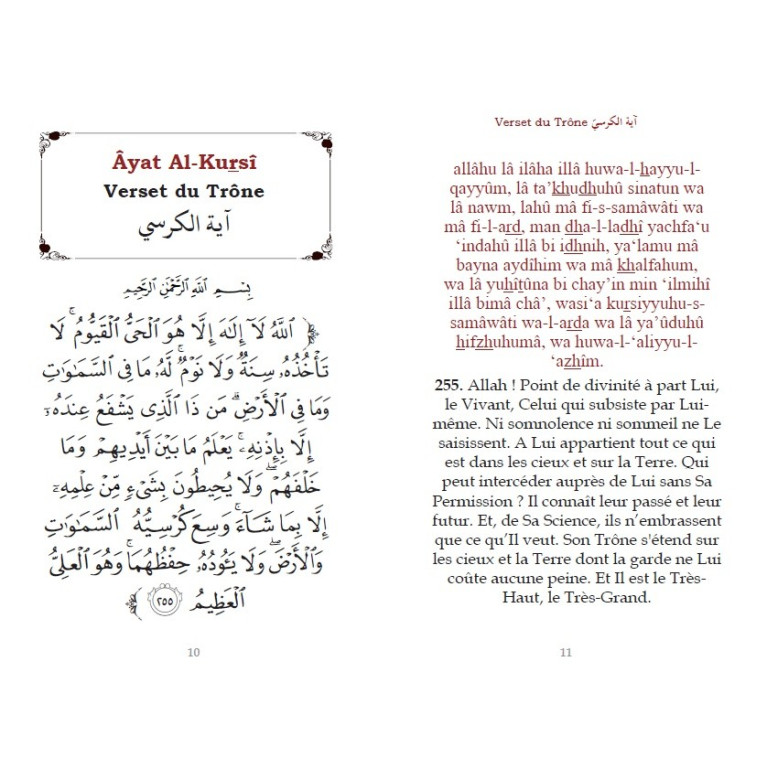 Âyat Al-Kursî
Verset du Trône
آية الكرسي
بِسْمِ اللَّهِ الرَّحْمَٰنِ الرَّحِيمِ
﴿ ٱللَّهُ لَآ إِلَٰهَ إِلَّا هُوَ ٱلْحَىُّ ٱلْقَيُّومُ ۚ لَا
تَأْخُذُهُۥ سِنَةٌ وَلَا نَوْمٌ ۚ لَّهُۥ مَا فِى ٱلسَّمَٰوَٰتِ
وَمَا فِى ٱلْأَرْضِ ۗ مَن ذَا ٱلَّذِى يَشْفَعُ عِندَهُۥٓ
إِلَّا بِإِذْنِهِۦ ۚ يَعْلَمُ مَا بَيْنَ أَيْدِيهِمْ وَمَا
خَلْفَهُمْ ۖ وَلَا يُحِيطُونَ بِشَىْءٍ مِّنْ عِلْمِهِۦٓ
إِلَّا بِمَا شَآءَ ۚ وَسِعَ كُرْسِيُّهُ ٱلسَّمَٰوَٰتِ
وَٱلْأَرْضَ ۖ وَلَا يَـُٔودُهُۥ حِفْظُهُمَا ۚ وَهُوَ ٱلْعَلِىُّ
ٱلْعَظِيمُ ٢٥٥ ﴾
10
Verset du Trône آية الكرسيّ
allâhu lâ ilâha illâ huwa-l-hayyu-l-
qayyûm, lâ ta’khudhuhû sinatun wa
lâ nawm, lahû mâ fi-s-samâwâti wa
mâ fî-l-ard, man dha-l-ladhî yachfa‘u
‘indahû illâ bi idhnih, ya‘lamu mâ
bayna aydîhim wa mâ khalfahum,
wa lâ yuhîtûna bi chay’in min ‘ilmihî
illâ bimâ châ’, wasi‘a kursiyyuhu-s-
samâwâti wa-l-arda wa lâ ya’ûduhû
hifzhuhumâ, wa huwa-l-‘aliyyu-l-
‘azhîm.
255. Allah ! Point de divinité à part Lui,
le Vivant, Celui qui subsiste par Lui-
même. Ni somnolence ni sommeil ne Le
saisissent. A Lui appartient tout ce qui
est dans les cieux et sur la Terre. Qui
peut intercéder auprès de Lui sans Sa
Permission ? Il connaît leur passé et leur
futur. Et, de Sa Science, ils n’embrassent
que ce qu’Il veut. Son Trône s'étend sur
les cieux et la Terre dont la garde ne Lui
coûte aucune peine. Et Il est le Très-
Haut, le Très-Grand.
11